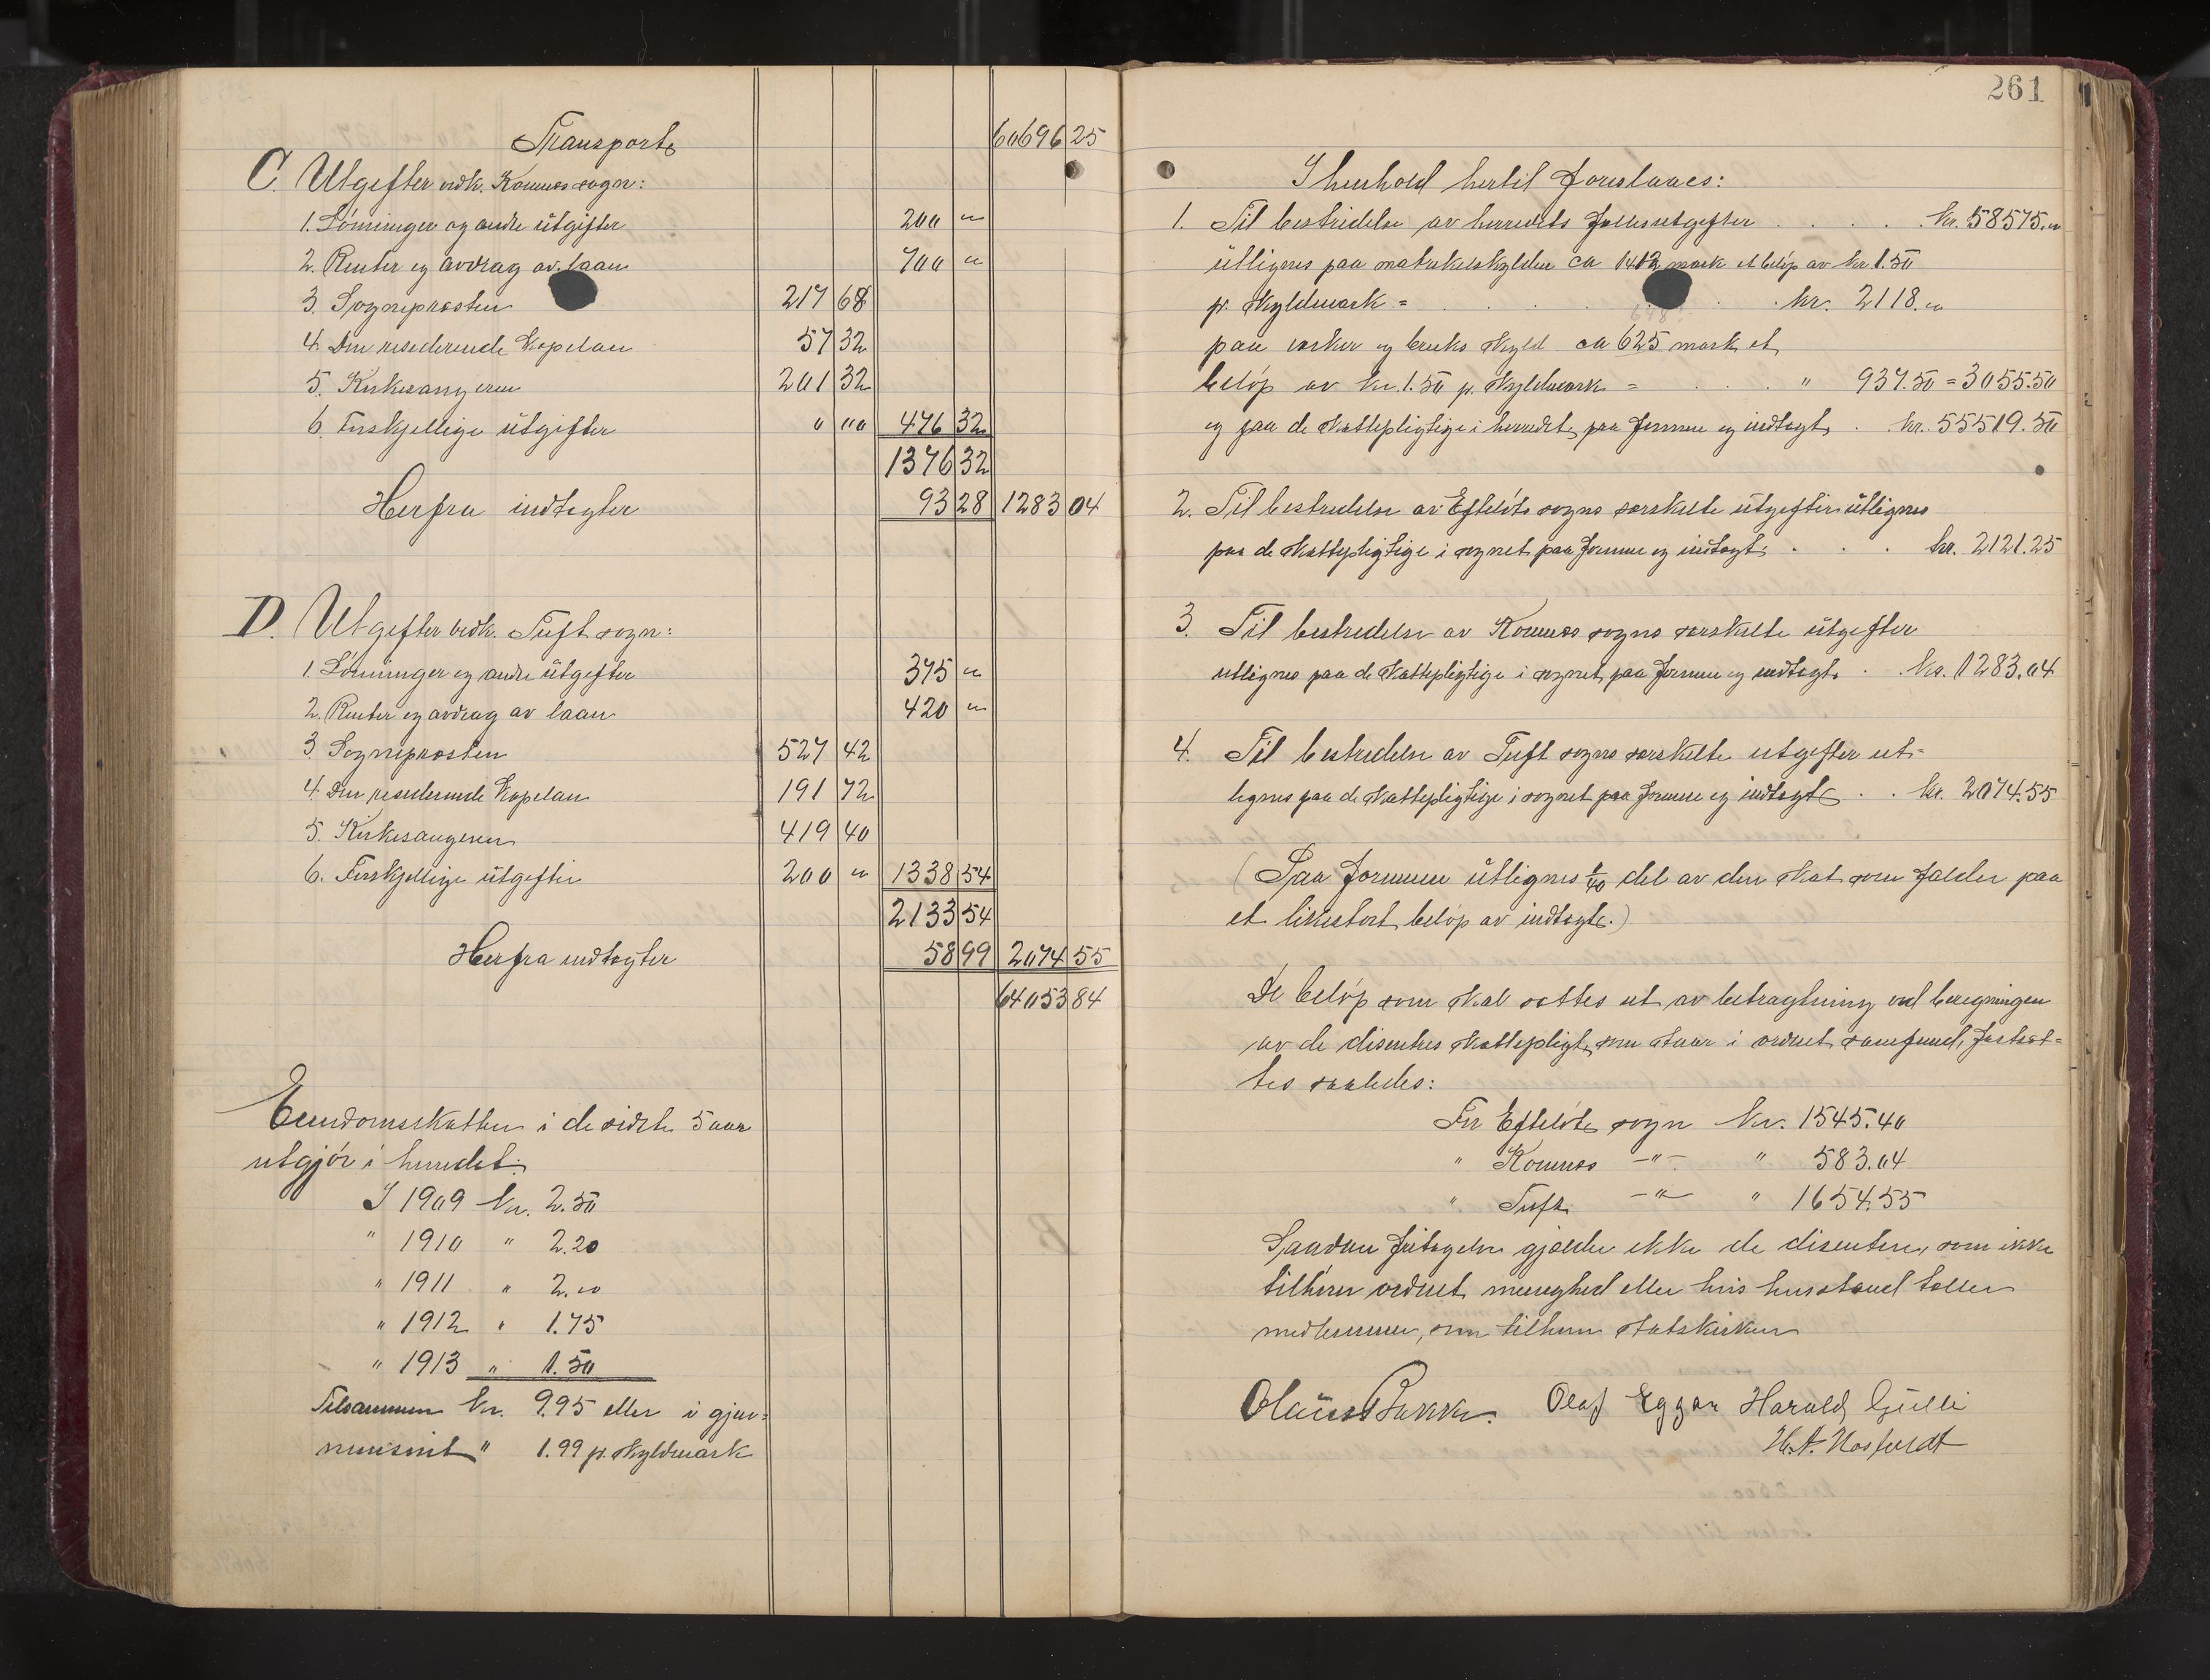 Transport 60696 25
C. Utgifter vedk. Komnes sogn:
1. Lønninger og andre utgifter 200 "
2. Renter og avdrag av laan 700 "
3. Sognepresten 217 68
4. Den residerende Kapelan 57 32
5. Kirkesangeren 201 32
6. Forskjellige utgifter " " 476 32
1376 32
Herfra indtægter 93 28 1283 04
D. Utgifter vedk. Tuft sogn:
1. Lønninger og andre utgifter 375 "
2. Renter og avdrag av laan 420 "
3. Sognepresten 527 42
4. Den residerende Kapelan 191 72
5. Kirkesangeren 419 40
6. Forskjellige utgifter 200 " 1338 54
2133 54
Herfra indtægter 58 99 2074 55
64053 84
Eiendomsskatten i de sidste 5 aar
utgjør i herredet:
I 1909 kr. 2.50
" 1910 " 2.20
" 1911 " 2.00
" 1912 " 1.75
" 1913 " 1.50
Tilsammen kr. 9.95 eller i gjen-
nemsnit " 1.99 pr. skyldmark
261
I henhold hertil foreslaaes:
1. Til bestridelse av herredets fællesutgifter . . . . kr. 58575.00
utlignes paa matrikelskylden ca 1412 mark et beløp av kr. 1.50
pr. skyldmark = . . . . kr. 2118.00
paa verker og bruks skyld ca 625 mark et
beløp av kr. 1.50 pr. skyldmark = . . . " 937.50 = 3055.50
og paa de skattepligtige i herredet paa formue og indtægt . kr. 55519.50
2. Til bestridelse av Efteløts sogns særskilte utgifter utlignes
paa de skattepligtige i sognet paa formue og indtægt . . . kr. 2121.25
3. Til bestridelse av Komnes sogns særskilte utgifter
utlignes paa de skattepligtige i sognet paa formue og indtægt . . kr. 1283.04
4. Til bestridelse av Tuft sogns særskilte utgifter ut-
lignes paa de skattepligtige i sognet paa formue og indtægt . . kr. 2074.55
(Paa formuen utlignes del av den skat som falder paa
et likestort beløp av indtægt.)
De beløp som skal sættes ut av betragtning ved beregningen
av de disentres skattepligt, som staar i ordnet samfund, fastsæt-
tes saaledes:
For Efteløts sogn kr. 1545.40
" Komnes -"- " 583.04
" Tuft -"- " 1654.55
Saadan fritagelse gjælder ikke de disentere, som ikke
tilhører ordnet menighed eller hvis husstand tæller
medlemmer, som tilhører statskirken
Olaus Bakke. Olaf Eggar Harald Gulli
H. A.